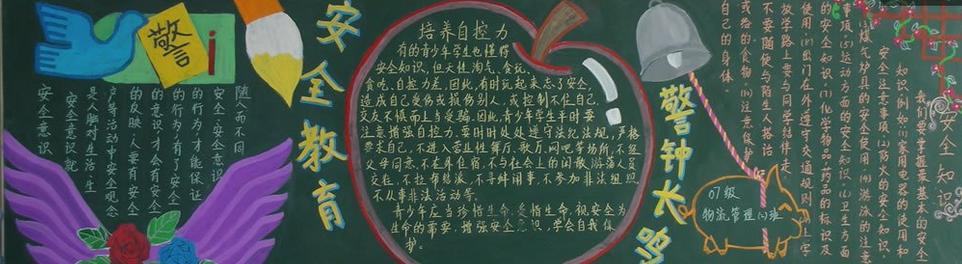 警
安全教育
警钟长鸣
培养自控力
有的青少年学生也懂得
安全知识,但天性淘气、贪玩、
贪吃、自控力差,因此,有时玩起来忘了安全,
造成自己受伤或损伤别人,或控制不住自己,
交友不慎而上当受骗。因此,青少年学生平时要
注意增强自控力,要时时处处遵守法纪法规,严格
要求自己,不进入营业性舞厅、歌厅、网吧等场所,不经
父母同意,不在外住宿,不与社会上的闲散游荡人员
交往,不拉帮结派,不寻衅闹事,不参加非法组织
不从事非法活动等。
青少年应当珍惜生命,爱惜生命,视安全为
生命的需要,增强安全意识,学会自我保
护。
安全意识
安全意识就
是人脑对生活、生
产等活动中安全观念
的反映。人要有安全
的意识,才会有安全
的行为;有了安全
的行为,才能保证
安全。安全意识
随人而不同
07级
物流管理(1)班
安全知识
我们要掌握最基本的安全
知识,例如:(1)家用电器的使用和
安全注意事项,(2)药火的安全知识,
煤气炉具的安全使用,(4)游泳的注意
事项,(5)运动方面的安全知识,(6)卫生方面
的安全知识,(7)化学物品、药品的标识及
使用,(8)出门在外遵守交通规则,上学
放学路上要与同学结伴走,
不要随便与陌生人搭话
或给的食物,(10)注意保护
自己的身体。